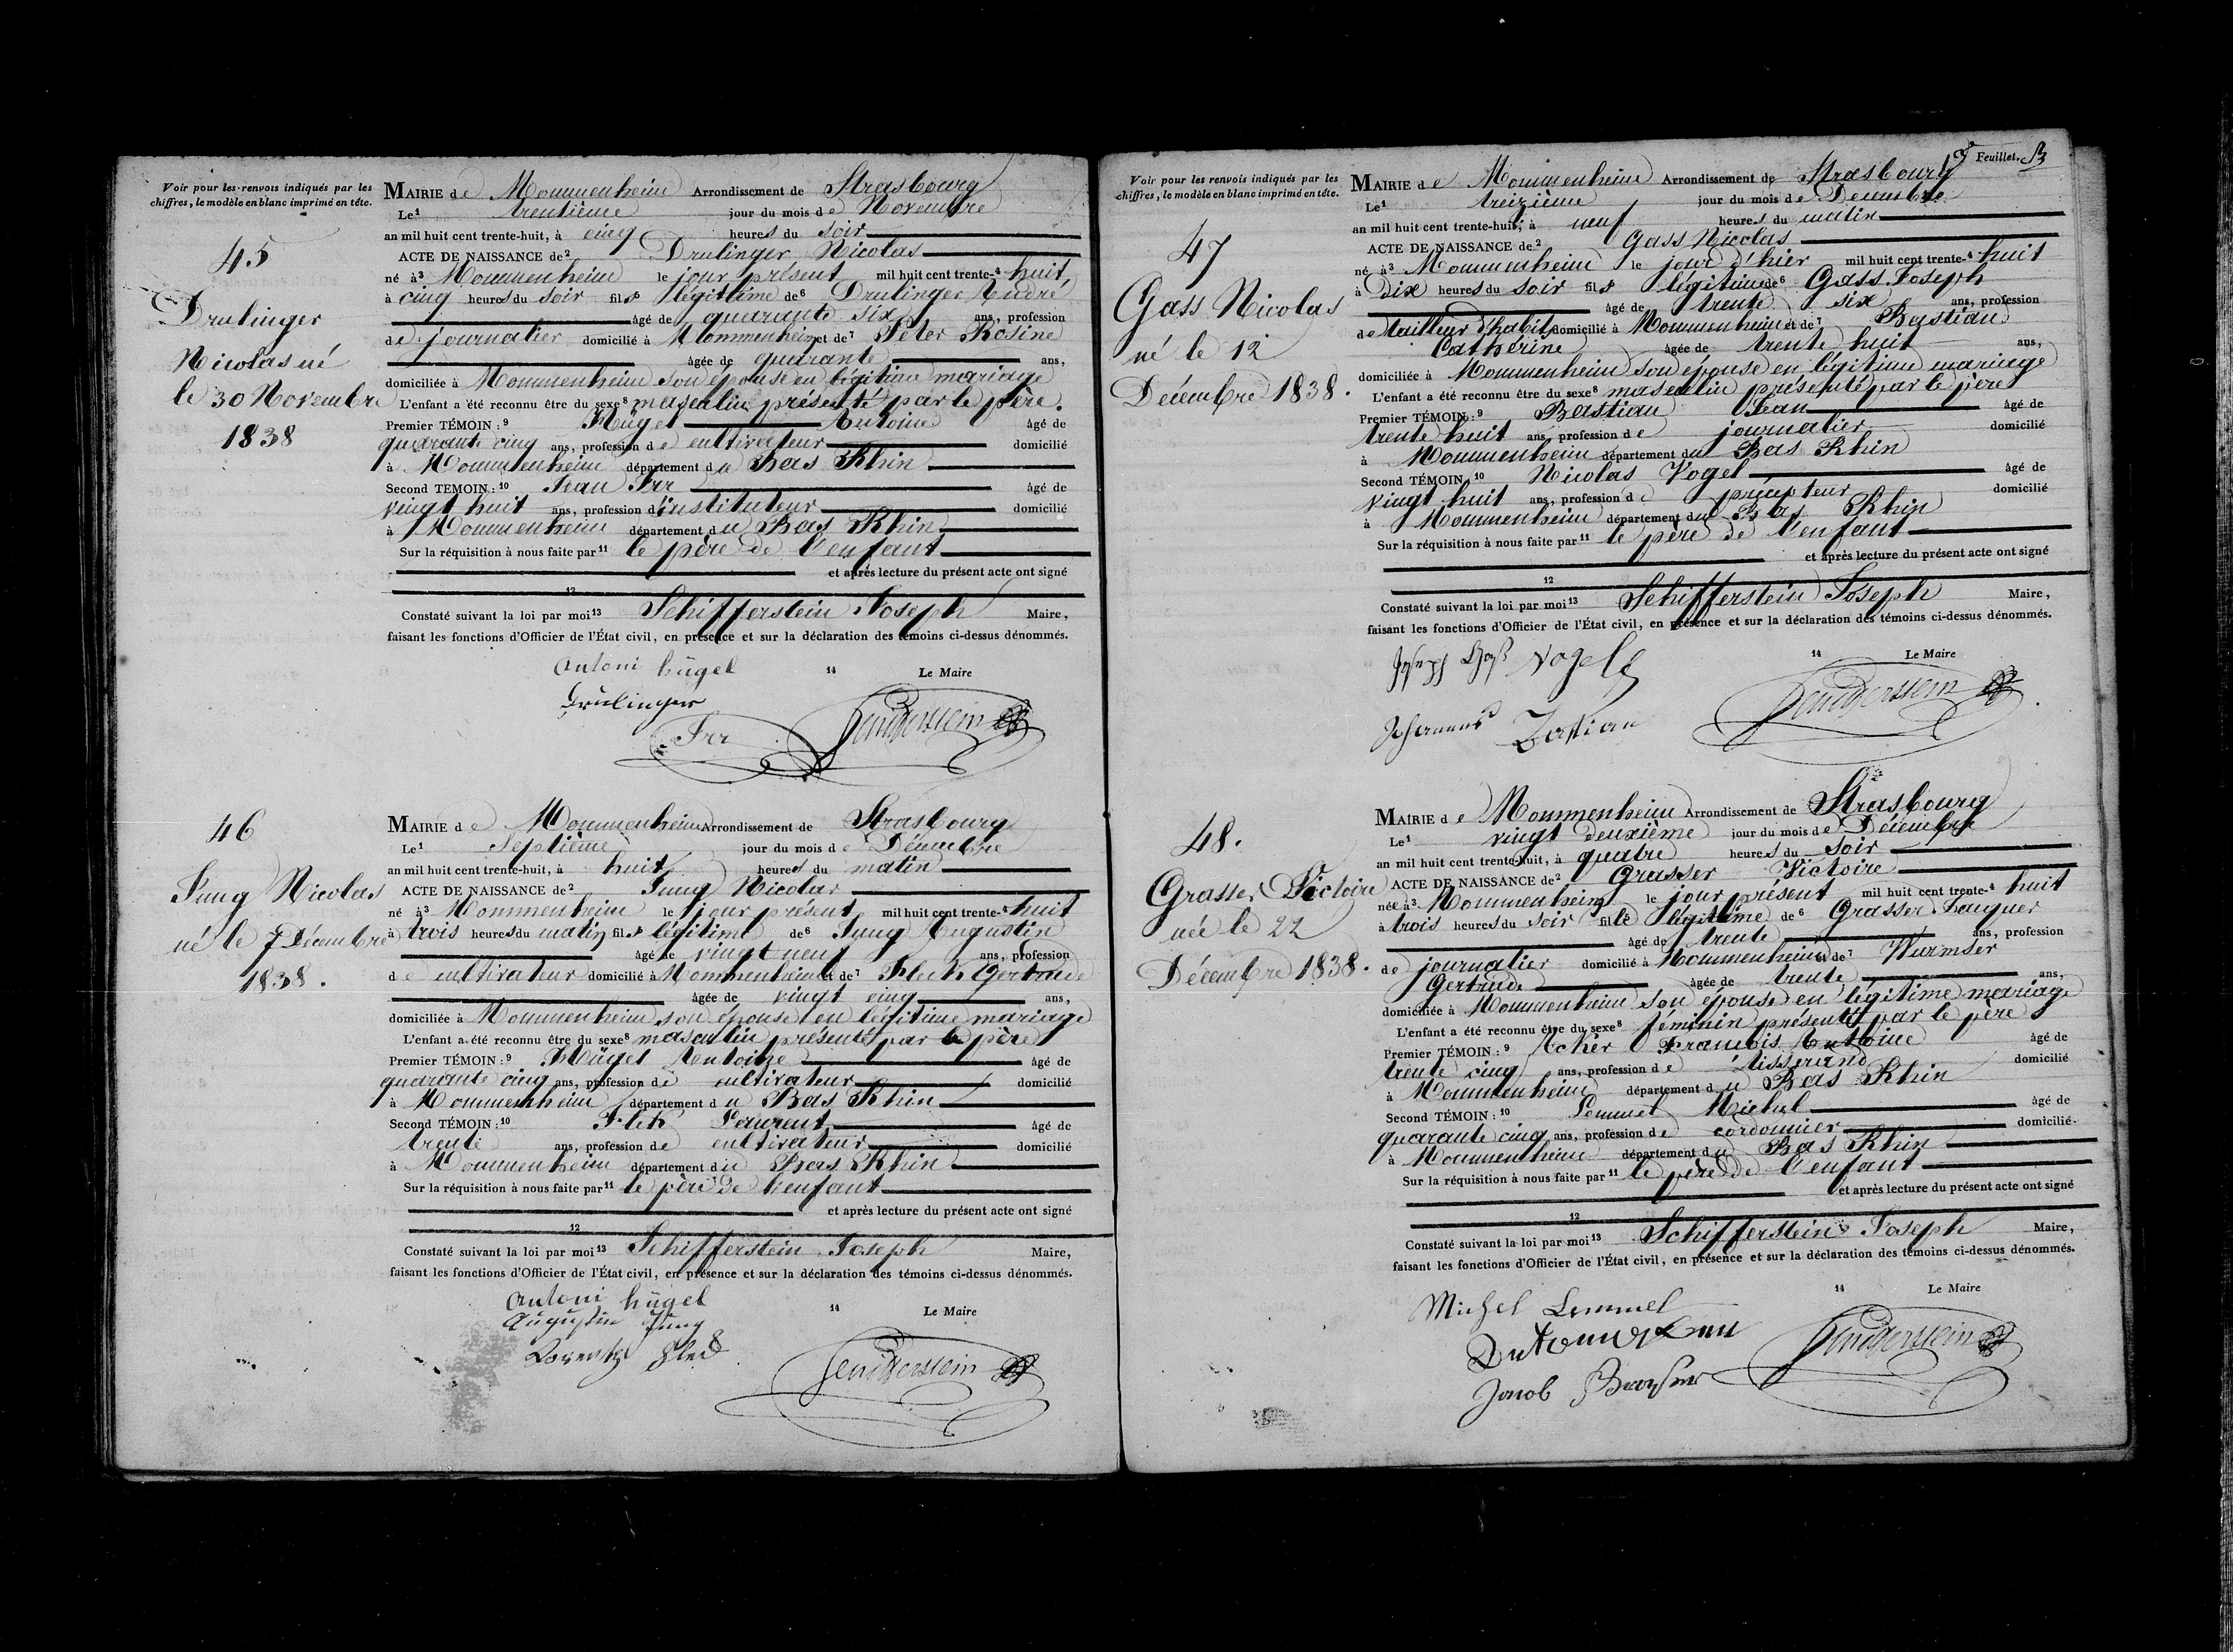 Voir pour les renvois indiqués par les
chiffres, le modèle en blanc imprimé en tête.
45
Drulinger
Nicolas né
le 30 Novembre
1838
MAIRIE de Mommenheim Arrondissement de Strasbourg
Le 1 trentième jour du mois de Novembre
an mil huit cent trente-huit, à cinq heures du soir
ACTE DE NAISSANCE de 2 Drulinger Nicolas
né à 3 Mommenheim le jour présent mil huit cent trente- 4 huit
à cinq heures du soir fils 5 légitime de 6 Drulinger André
âgé de quarante six ans, profession
de journalier domicilié à Mommenheim et de 7 Peter Rosine
âgée de quarante ans,
domiciliée à Mommenheim son épouse en légitime mariage
L'enfant a été reconnu être du sexe 8 masculin présenté par le père.
Premier TÉMOIN : 9 Hügel Antoine âgé de
quarante cinq ans, profession de cultivateur domicilié
à Mommenheim département du Bas Rhin
Second TEMOIN : 10 Jean Irr âgé de
vingt huit ans, profession d'instituteur domicilié
à Mommenheim département du Bas Rhin
Sur la réquisition à nous faite par 11 le père de l'enfant
et après lecture du présent acte ont signé
12
Constaté suivant la loi par moi 13 Schifferstein Joseph Maire,
faisant les fonctions d'Officier de l'État civil, en présence et sur la déclaration des témoins ci-dessus dénommés.
Antoni hügel 14 Le Maire
Drulinger
Irr Schifferstein
46
Jung Nicolas
né le 7 Décembre
1838.
MAIRIE de Mommenheim Arrondissement de Strasbourg
Le 1 Septième jour du mois de Décembre
an mil huit cent trente-huit, à huit heures du matin
ACTE DE NAISSANCE de 2 Jung Nicolas
né à 3 Mommenheim le jour présent mil huit cent trente- 4 huit
à trois heures du matin fils légitime de 6 Jung Augustin
âgé de vingt neuf ans, profession
de cultivateur domicilié à Mommenheim et de 7 Fleck Gertrude
âgée de vingt cinq ans,
domiciliée à Mommenheim son épouse en légitime mariage
L'enfant a été reconnu être du sexe 8 masculin présenté par le père
Premier TÉMOIN : 9 Hügel Antoine âgé de
quarante cinq ans, profession de cultivateur domicilié
à Mommenheim département du Bas Rhin
Second TÉMOIN : 10 Flek Laurent âgé de
trente ans, profession de cultivateur domicilié
à Mommenheim département du Bas Rhin
Sur la réquisition à nous faite par 11 le père de l'enfant
et après lecture du présent acte ont signé
12
Constaté suivant la loi par moi 13 Schifferstein Joseph Maire,
faisant les fonctions d'Officier de l'État civil, en présence et sur la déclaration des témoins ci-dessus dénommés.
Antoni hügel 14 Le Maire
Augustin Jung
Lorentz Schifferstein
Feuillet.
Voir pour les renvois indiqués par les
chiffres, le modèle en blanc imprimé en tête.
47
Gass Nicolas
né le 12
Décembre 1838.
MAIRIE de Mommenheim Arrondissement de Strasbourg
Le 1 treizième jour du mois de Décembre
an mil huit cent trente-huit, à neuf heures du matin
ACTE DE NAISSANCE de 2 Gass Nicolas
né à 3 Mommenheim le jour d'hier mil huit cent trente- 4 huit
à Dix heures du soir fils légitime de 6 Gass Joseph
âgé de trente six ans, profession
de tailleur d'habit domicilié à Mommenheim et de 7 Bastian
Cathérine âgée de trente huit ans,
domiciliée à Mommenheim son épouse en légitime mariage
L'enfant a été reconnu être du sexe 8 masculin présenté par le père
Premier TÉMOIN : 9 Bastian Jean âgé de
trente huit ans, profession de journalier domicilié
à Mommenheim département du Bas Rhin
Second TÉMOIN 10 Nicolas Vogel âgé de
vingt huit ans, profession de précepteur domicilié
à Mommenheim département du Bas Rhin
Sur la réquisition à nous faite par 11 le père de l'enfant
et après lecture du présent acte ont signé
12
Constaté suivant la loi par moi 13 Schifferstein Joseph Maire,
faisant les fonctions d'Officier de l'État civil, en présence et sur la déclaration des témoins ci-dessus dénommés.
Joseph Gaß Vogel 14 Le Maire
Johannes Bastian Schifferstein
48.
Grasser Victoire
née le 22
Décembre 1838.
MAIRIE de Mommenheim Arrondissement de Strasbourg
Le 1 vingt deuxième jour du mois de Décembre
an mil huit cent trente-huit, à quatre heures du soir
ACTE DE NAISSANCE de 2 Grasser Victoire
née à 3 Mommenheim le jour présent mil huit cent trente- 4 huit
à trois heures du soir fille légitime de 6 Grasser Jaques
âgé de trente ans, profession
de journalier domicilié à Mommenheim et de 7 Wurmser
Gertrude âgée de trente ans,
domiciliée à Mommenheim son épouse en légitime mariage
L'enfant a été reconnu être du sexe 8 féminin présenté par le père
Premier TÉMOIN : 9 Acker François Antoine âgé de
trente cinq ans, profession de tisserand domicilié
à Mommenheim département du Bas Rhin
Second TÉMOIN : 10 Lemmel Michel âgé de
quarante cinq ans, profession de cordonnier domicilié
à Mommenheim département du Bas Rhin
Sur la réquisition à nous faite par 11 le père de l'enfant
et après lecture du présent acte ont signé
12
Constaté suivant la loi par moi 13 Schifferstein Joseph Maire,
faisant les fonctions d'Officier de l'État civil, en présence et sur la déclaration des témoins ci-dessus dénommés.
Michel Lemmel 14 Le Maire
Schifferstein
Jacob